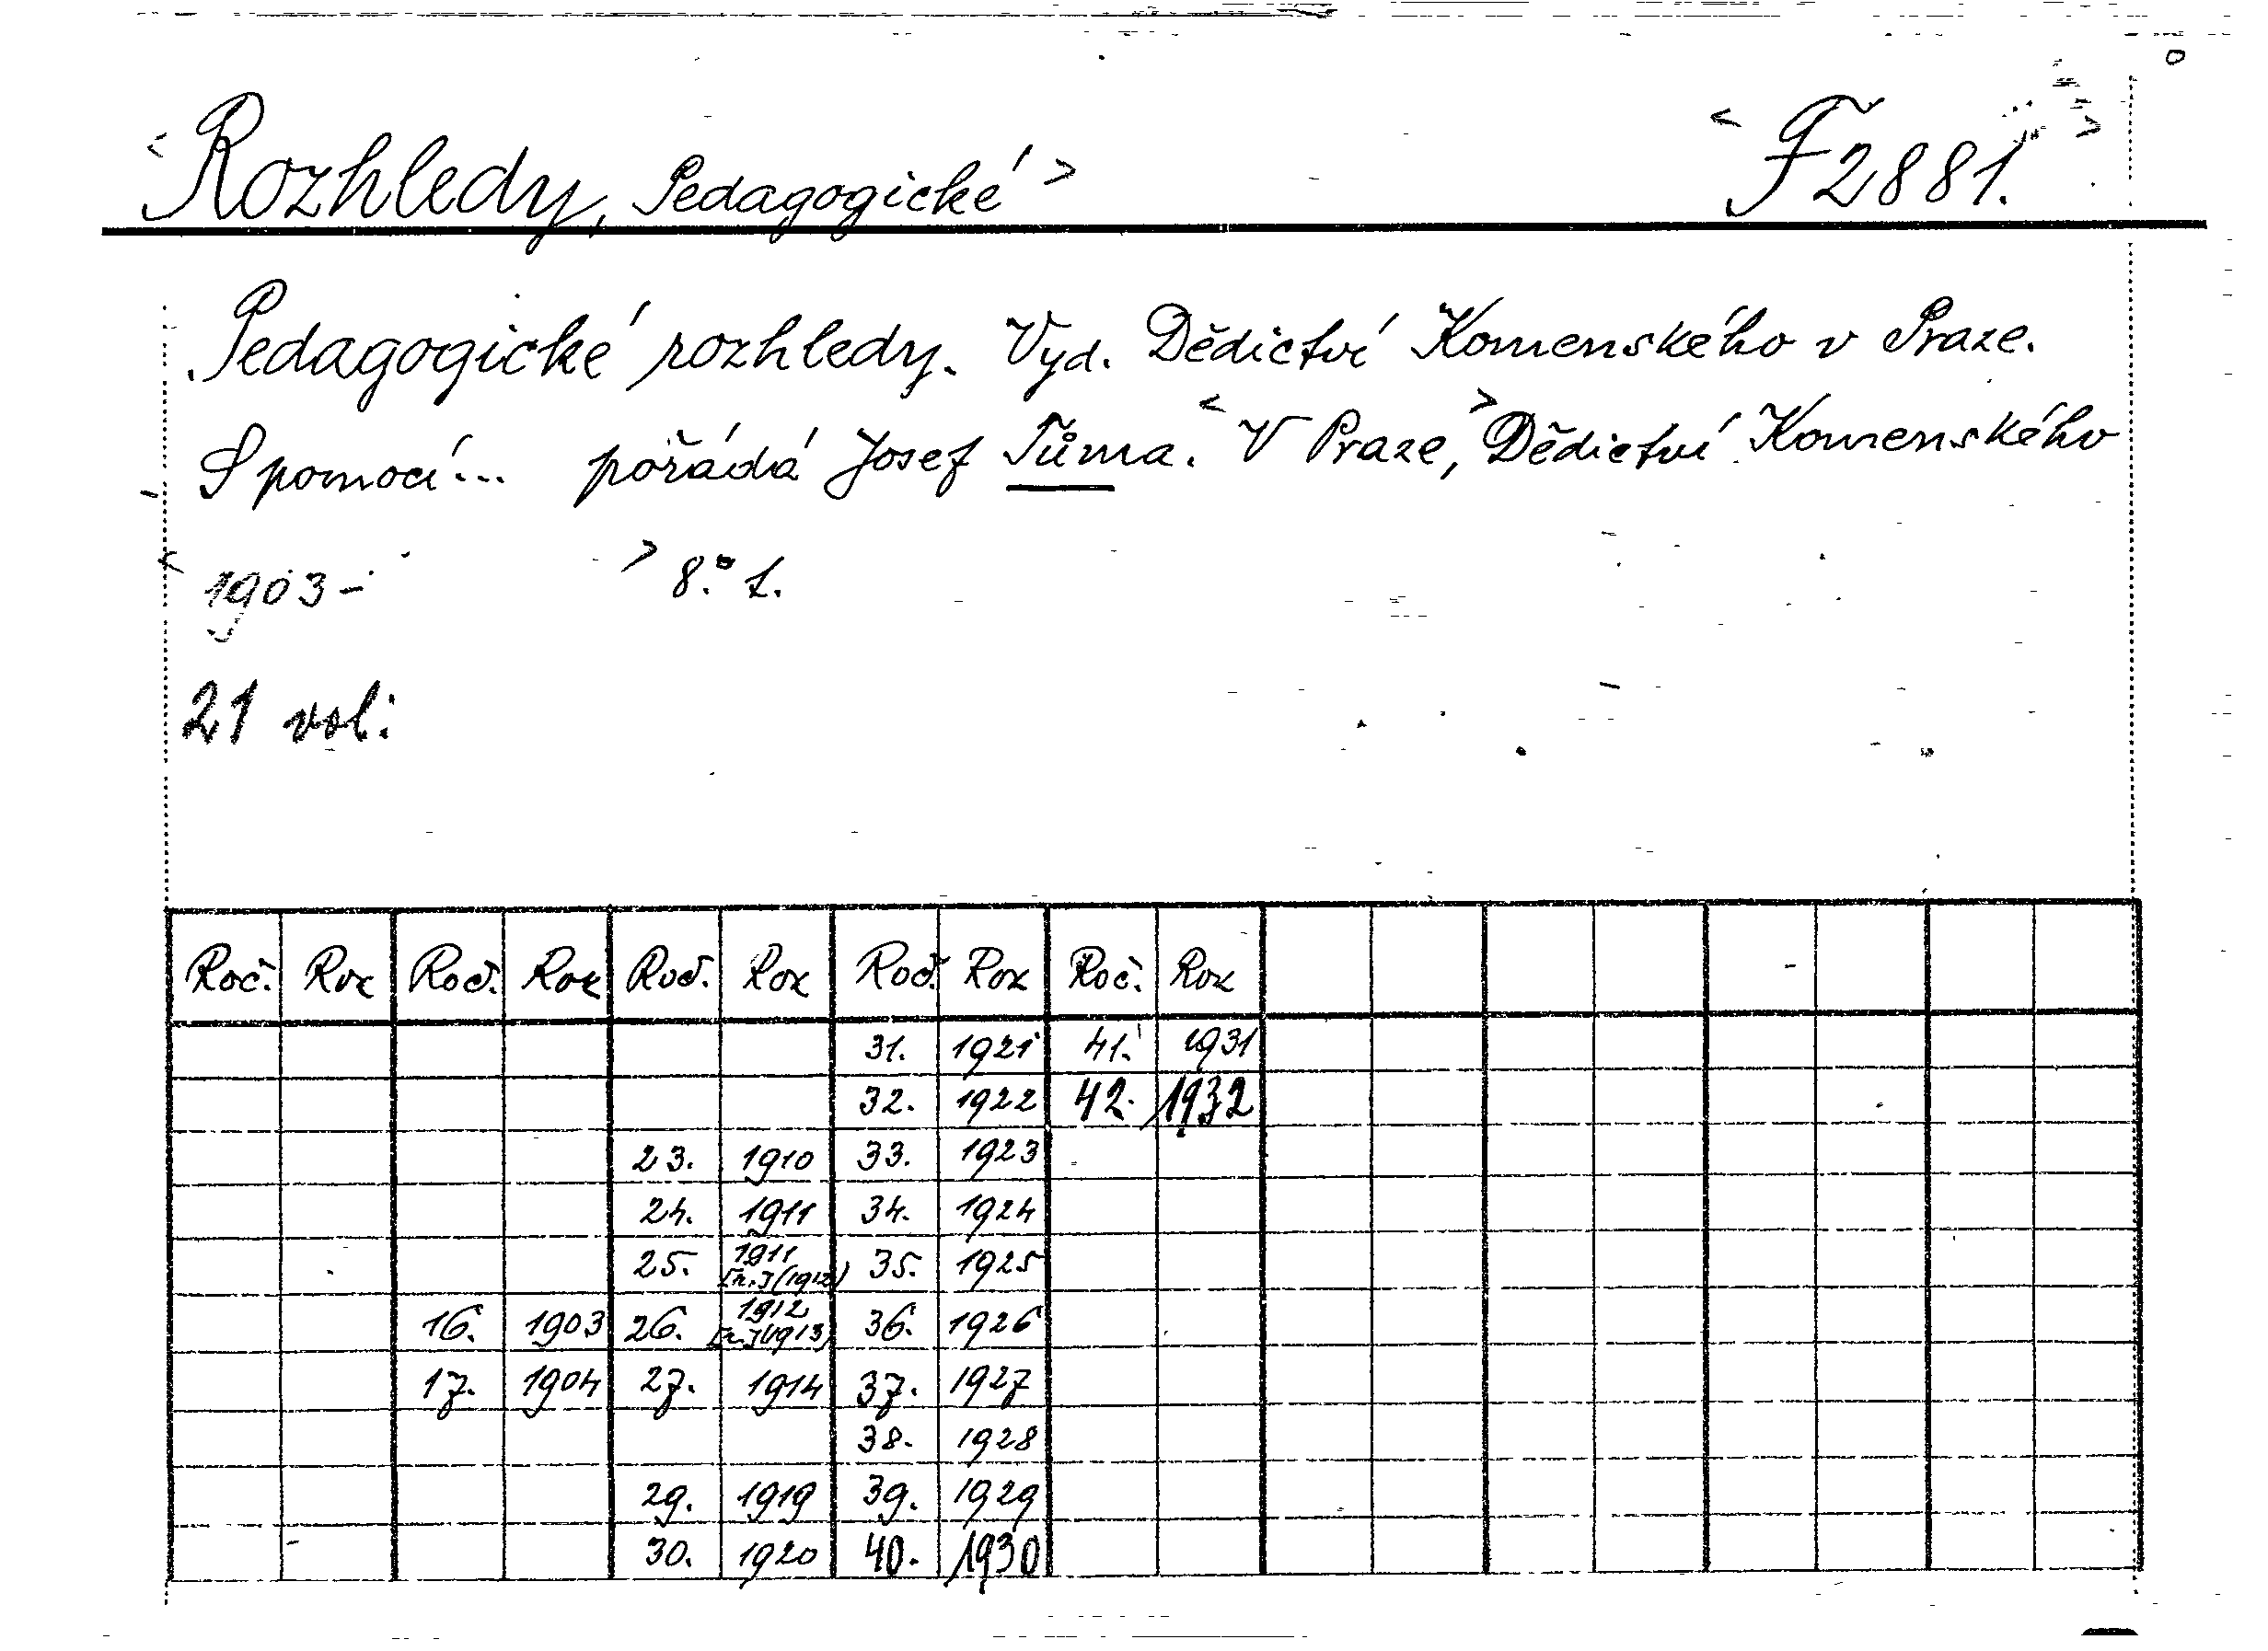 <Rozhledy, Pedagogické> <F 2881.>
Pedagogické rozhledy. Vyd. Dědictví Komenského v Praze.
S pomocí... pořádá Josef Tůma. <V Praze,> Dědictví Komenského
<1903- > 8.° 1.
21 vol.
Roč. Rok Roč. Rok Roč. Rok Roč. Rok Roč. Rok
31. 1921 41. 1931
32. 1922 42. 1932
23. 1910 33. 1923
24. 1911 34. 1924
25. 1911 (1912) 35. 1925
16. 1903 26. 1912 (1913) 36. 1926
17. 1904 27. 1914 37. 1927
38. 1928
29. 1919 39. 1929
30. 1920 40. 1930